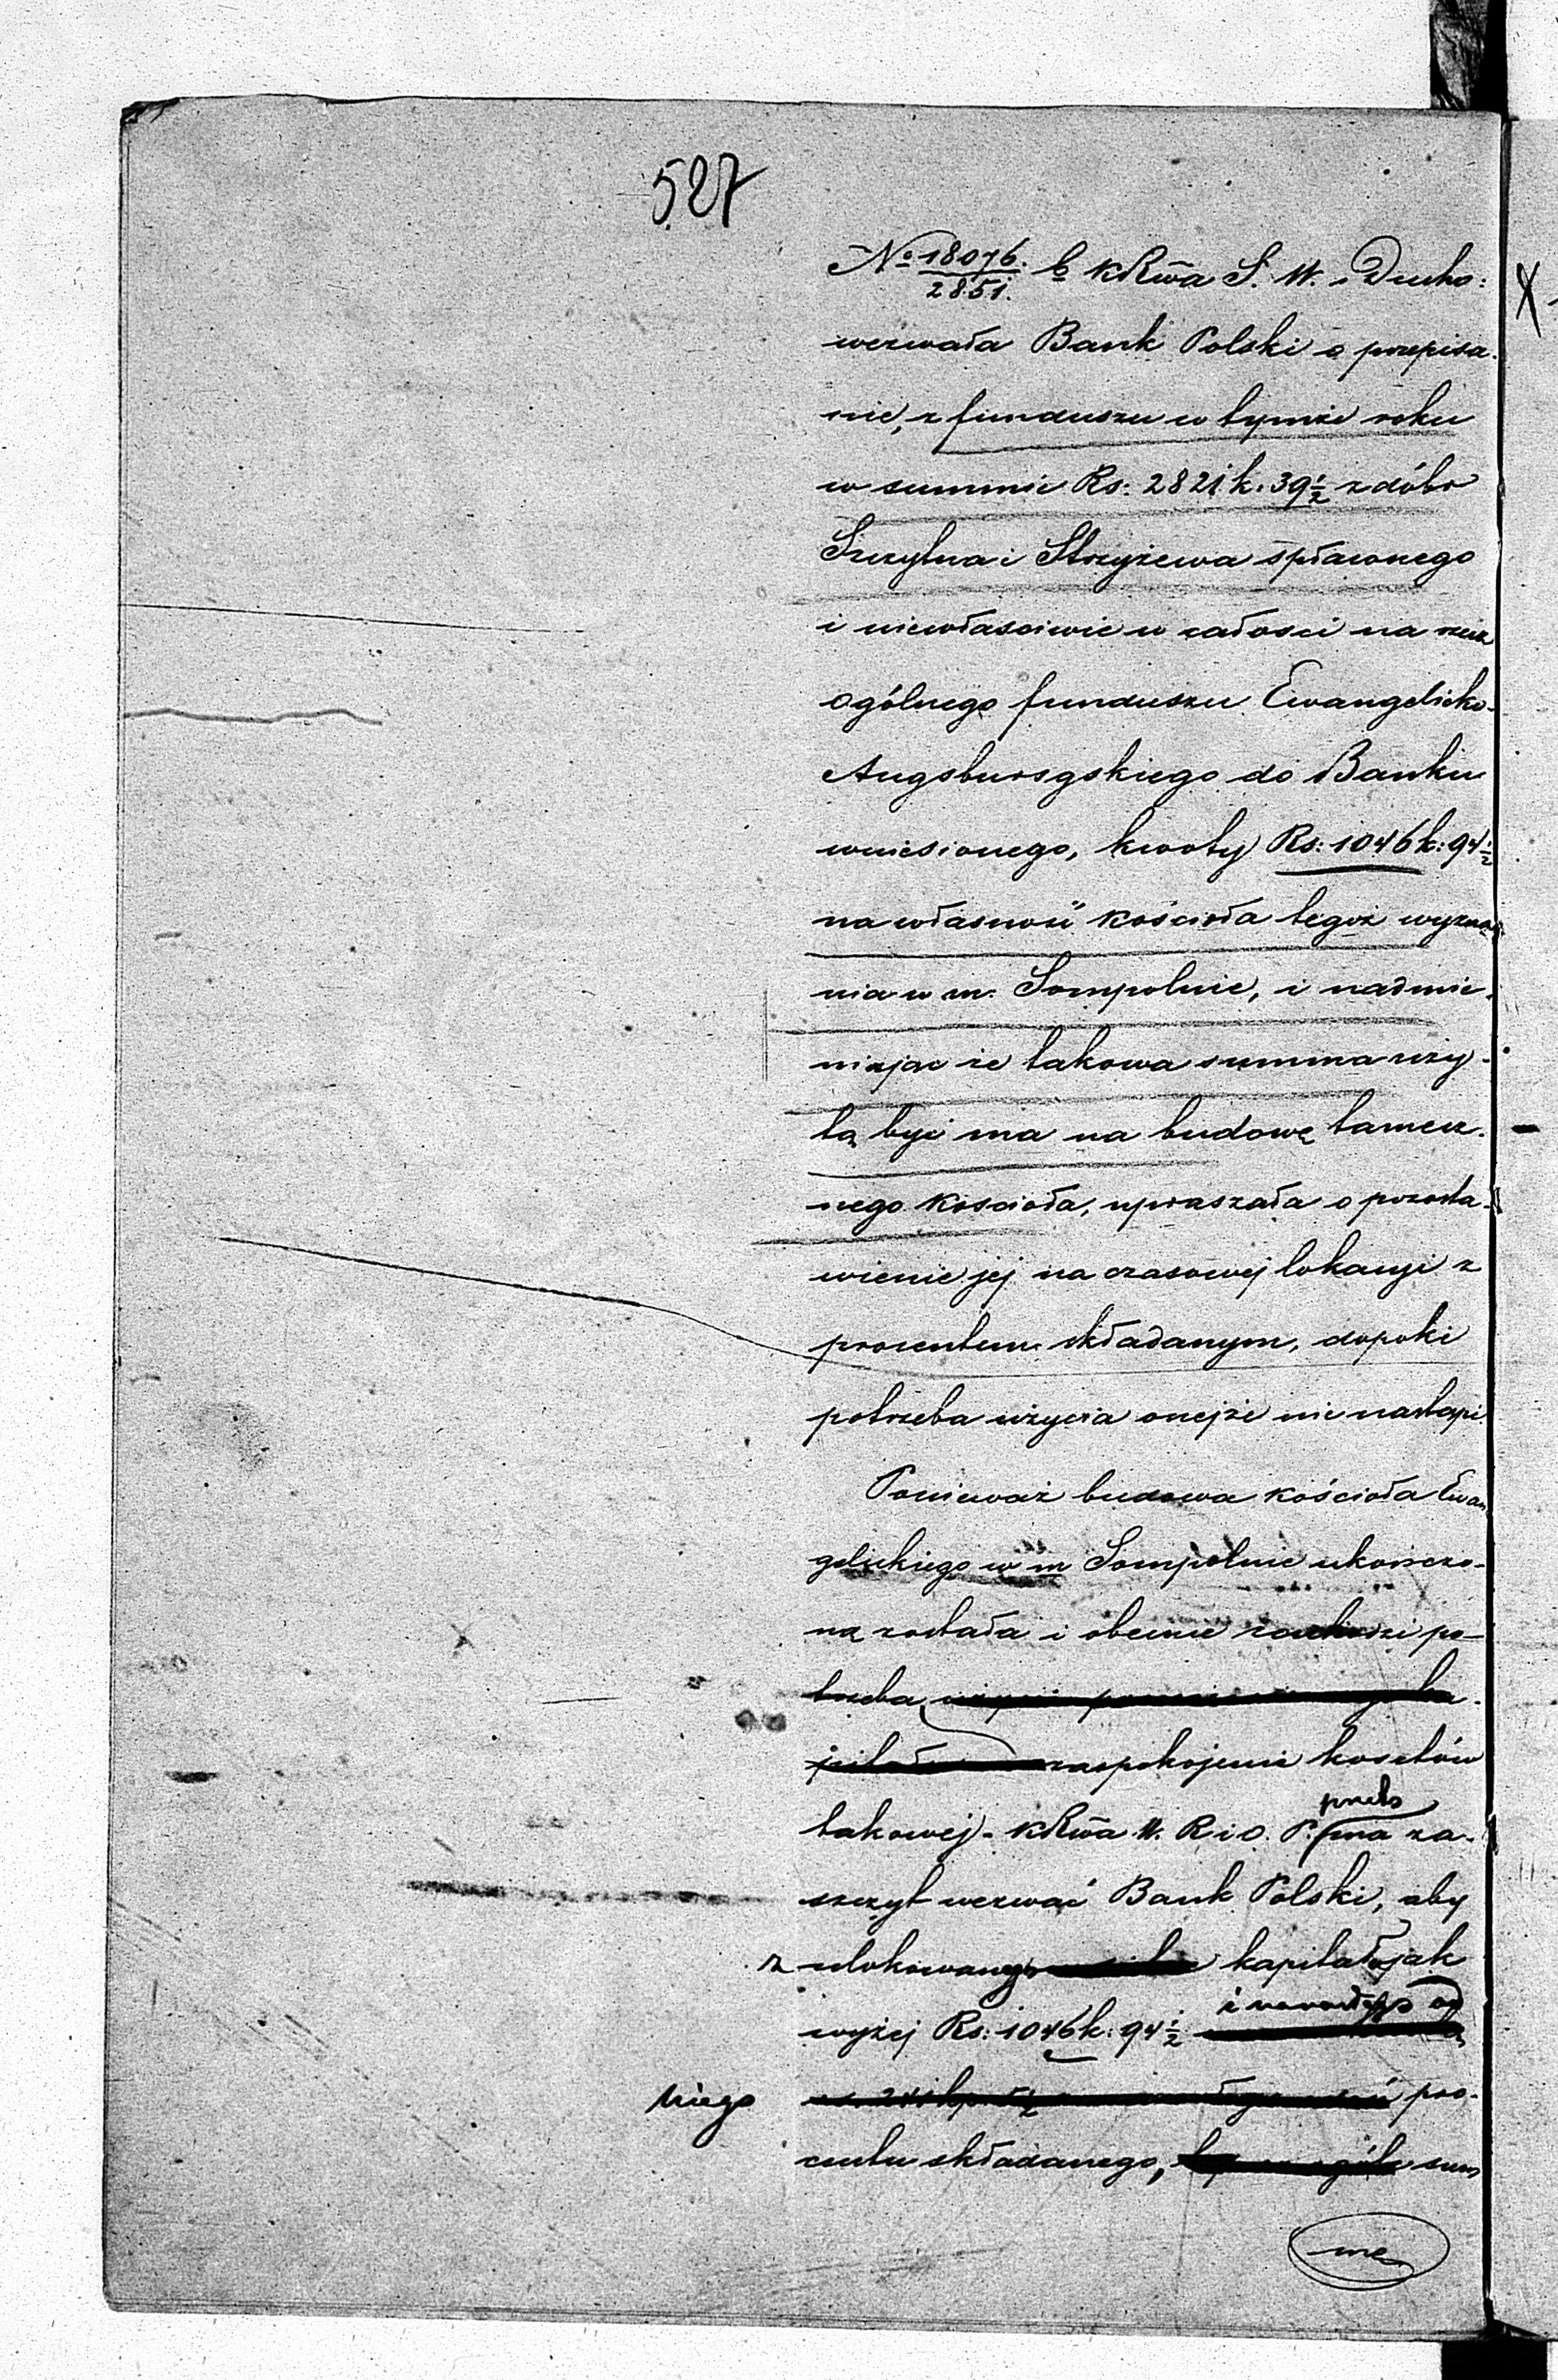 527
№ 18076/2851. b KRwa S. W. i Ducho:
wezwała Bank Polski o przepisa-
nie, z funduszu w tymże roku
w summie Rs: 2821 k. 39½ z dóbr
Szczytna i Strzyżewa spławonego
i niewłasciwie w całosci na rzecz
ogólnego funduszu Ewangelicko-
Augsburgskiego do Banku
wniesionego, kwoty Rs: 1046 k: 94½
na własność kościoła tegoż wyzna-
nia w m. Sompolnie, i nadmie-
niając że takowa summa uży-
tą być ma na budowę tamecz-
nego Koscioła, upraszała o pozosta-
wienie jej na czasowej lokacyi z
procentem składanym, dopoki
potrzeba użycia onejże nie nastąpi
Ponieważ budowa kościoła Ewan
gelickiego w m Sompolnie ukończo-
ną została i obecnie zachodzi po-
trzeba
zaspokojenie kosztów
takowej - KRwa W. R i O. P. ma za-
szczyt wezwać Bank Polski, aby
z ulokowanego kapitału jak
i narosłego od
wyżej Rs: 1046 k: 94½
niego pro-
centu składanego, sum
me